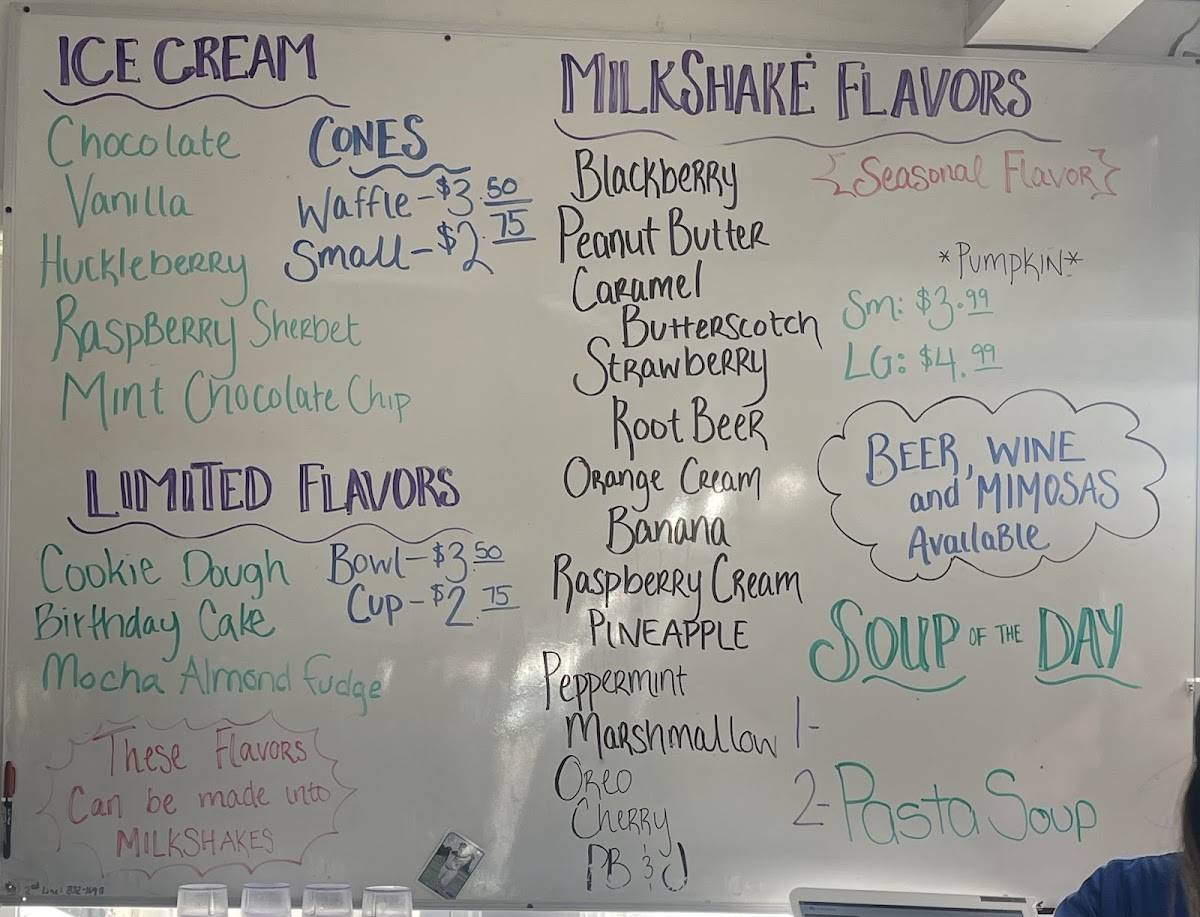 ICE CREAM
Chocolate
Vanilla
Huckleberry
Raspberry Sherbet
Mint Chocolate Chip
CONES
Waffle - $3.50
Small - $2.75
LIMITED FLAVORS
Cookie Dough
Birthday Cake
Mocha Almond Fudge
Bowl - $3.50
Cup - $2.75
These Flavors
Can be made into
MILKSHAKES
MILKSHAKE FLAVORS
Blackberry
Peanut Butter
Caramel
Butterscotch
Strawberry
Root Beer
Orange Cream
Banana
Raspberry Cream
PINEAPPLE
Peppermint
Marshmallow
Oreo
Cherry
PB & J
{Seasonal Flavor}
*Pumpkin*
Sm: $3.99
LG: $4.99
BEER, WINE
and MIMOSAS
Available
SOUP OF THE DAY
1-
2- Pasta Soup